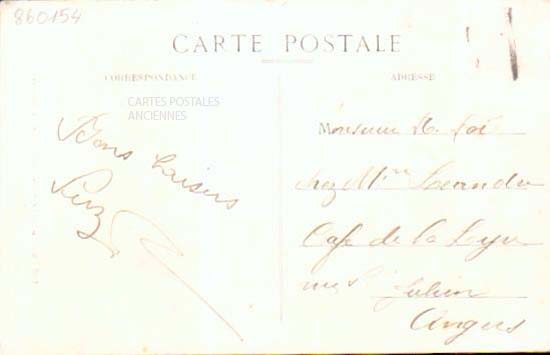 860154
CARTE POSTALE
CORRESPONDANCE
ADRESSE
CARTES POSTALES
ANCIENNES
Bons baisers
Monsieur H.
chez Mme
Café de la
rue St Julien
Angers